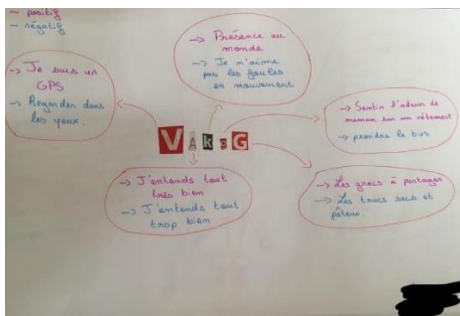 - positif
- négatif
→ Je suis un
GPS
→ Regarder dans
les yeux.
→ Présence au
monde
→ Je n'aime
pas les foules
en mouvement
→ Sentir l'odeur de
maman sur un vêtement
→ prendre le bus
VAKOG
→ J'entends tout
très bien
→ J'entends tout
trop bien
→ Les grecs à partager
→ Les trucs secs et
pâteux.